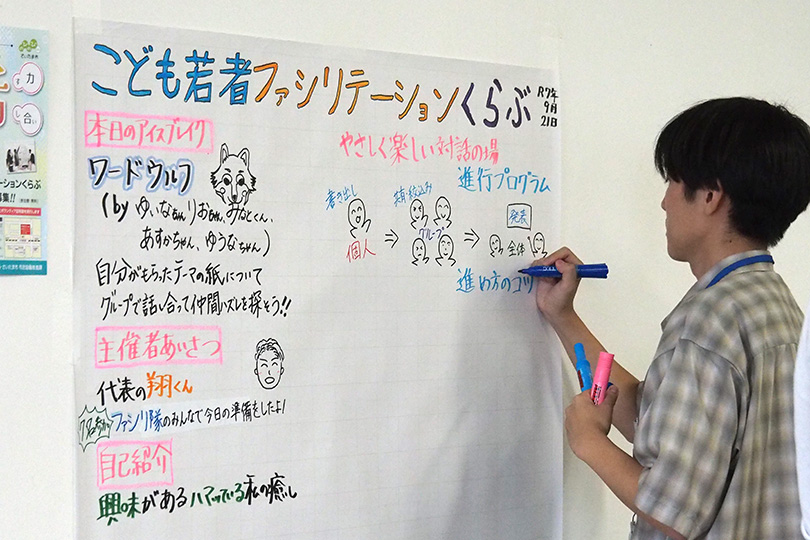 こども若者ファシリテーションくらぶ
R7年
9月
21日
本日のアイスブレイク
ワードウルフ
(by ゆいなちゃん りおちゃん、みなとくん、
あすかちゃん、ゆうなちゃん)
自分がもらったテーマの紙について
グループで話し合って仲間ハズレを探そう!!
主催者あいさつ
代表の翔くん
ファシリ隊のみんなで今日の準備をしたよ!
自己紹介
興味がある ハマっている 私の癒し
やさしく楽しい対話の場
進行プログラム
書き出し
個人
⇒
共有・絞込み
グループ
⇒
発表
全体
進め方のコツ
力
合い
ーションくらぶ
募集!!